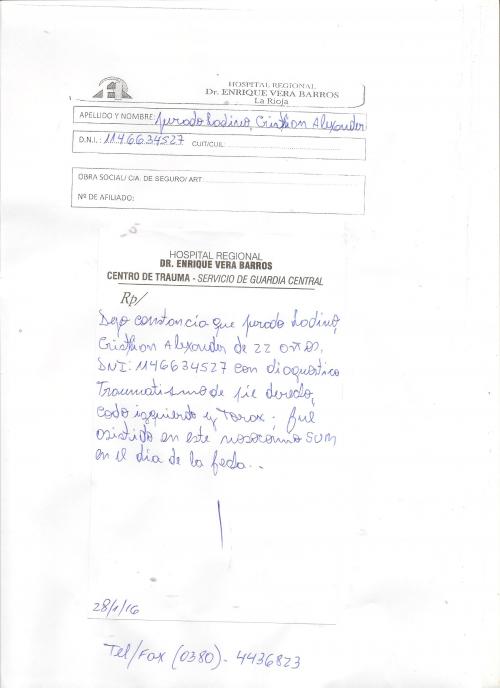 HOSPITAL REGIONAL
Dr. ENRIQUE VERA BARROS
La Rioja
APELLIDO Y NOMBRE: Jurado Ladino, Cristhian Alexander
D.N.I.: 1146634527 CUIT/CUIL:
OBRA SOCIAL/ CIA. DE SEGURO/ ART
Nº DE AFILIADO:
HOSPITAL REGIONAL
DR. ENRIQUE VERA BARROS
CENTRO DE TRAUMA - SERVICIO DE GUARDIA CENTRAL
Rp/
Dejo constancia que Jurado Ladino,
Cristhian Alexander de 22 años,
DNI: 1146634527 con diagnostico
Traumatismo de pie derecho,
codo izquierdo y Torax; fue
asistido en este nosocomio
en el dia de la fecha..
28/1/16
Tel/Fax (0380)- 4436823